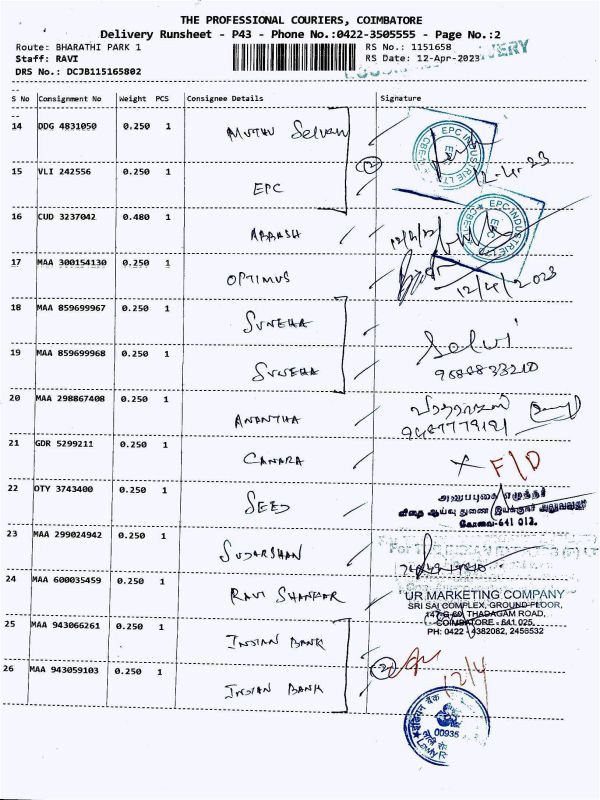 THE PROFESSIONAL COURIERS, COIMBATORE
Delivery Runsheet - P43 - Phone No.:0422-3505555 - Page No.:2
Route: BHARATHI PARK 1 RS No.: 1151658
Staff: RAVI RS Date: 12-Apr-2023
DRS No.: DCJB115165802
S No Consignment No Weight PCS Consignee Details Signature
14 DDG 4831050 0.250 1 MUTHU Selvan
EPC INDUSTRIE LTD
12-4-23
15 VLI 242556 0.250 1 EPC
2
16 CUD 3237042 0.480 1
EPC INDUSTRIE LTD
17 MAA 300154130 0.250 1 OPTIMUS
12/4/2023
18 MAA 859699967 0.250 1 SUNEHA
Selvi
19 MAA 859699968 0.250 1 SUNEHA
20 MAA 298867408 0.250 1 ANANTHA
21 GDR 5299211 0.250 1 CANARA F/D
22 OTY 3743400 0.250 1 SEED
அலுவலகம்
கோவை-641 013.
23 MAA 299024942 0.250 1 SUDARSHAN
24 MAA 600035459 0.250 1 RAVI SHANKAR
UR MARKETING COMPANY
SRI SAI COMPLEX, GROUND FLOOR,
THADAGAM ROAD,
COIMBATORE - 641 025.
PH: 0422 - 4382082, 2456532
25 MAA 943066261 0.250 1 INDIAN BANK
2
26 MAA 943059103 0.250 1 INDIAN BANK
12/4
इंडियन बैंक
00935